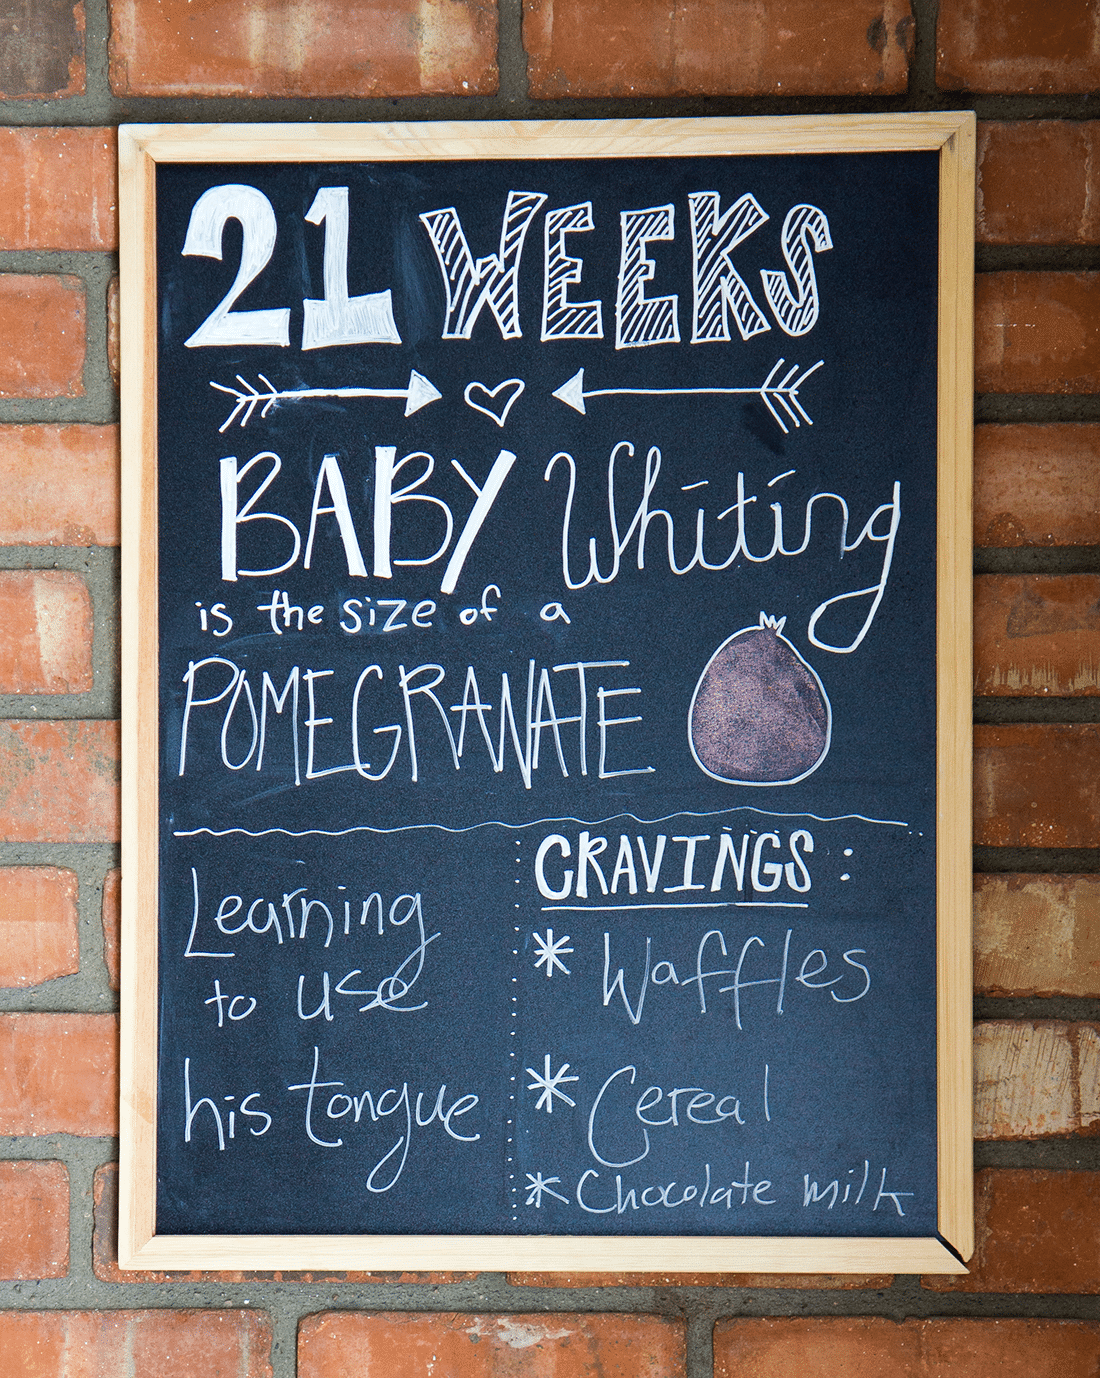 21 WEEKS
BABY Whiting
is the size of a
POMEGRANATE
Learning
to use
his tongue
CRAVINGS:
* Waffles
* Cereal
* Chocolate milk